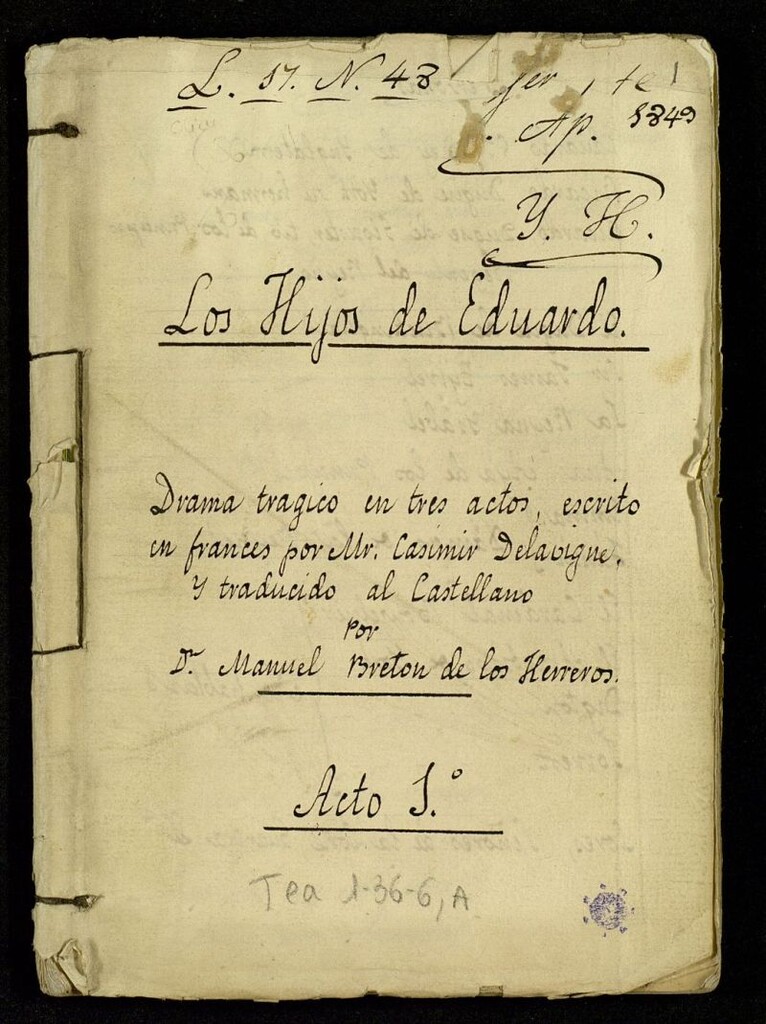 L. 57. N. 48
Ap. 1849
Y. H.
Los Hijos de Eduardo.
Drama tragico en tres actos, escrito
en frances por Mr. Casimir Delavigne.
Y traducido al Castellano
Por
Dn. Manuel Breton de los Herreros.
Acto 1.º
Tea 1-36-6, A